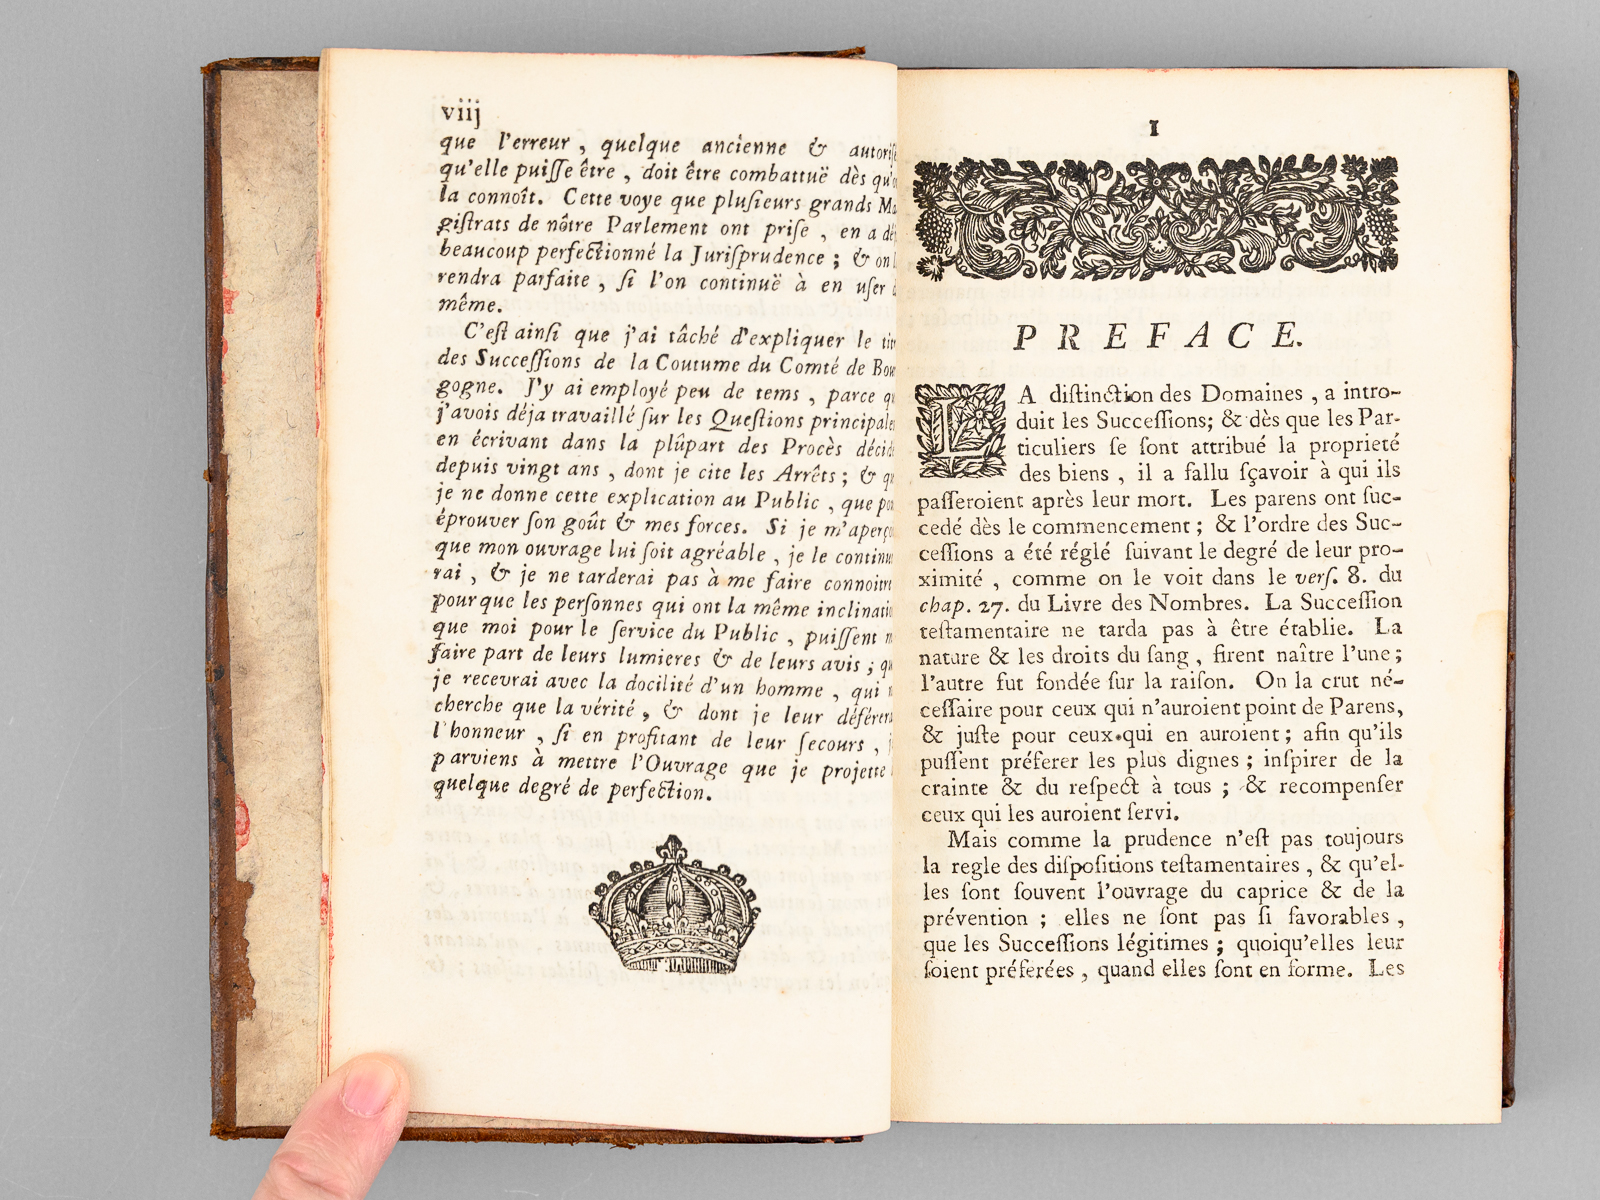 viij
que l'erreur, quelque ancienne & autori
qu'elle puiſſe être, doit être combattuë dès qu'
la connoît. Cette voye que pluſieurs grands Ma
giſtrats de nôtre Parlement ont priſe, en a dé
beaucoup perfectionné la Juriſprudence; & on
rendra parfaite, ſi l'on continuë à en uſer
même.
C'eſt ainſi que j'ai tâché d'expliquer le
des Succeſſions de la Coutume du Comté de
gogne. J'y ai employé peu de tems, parce
j'avois déja travaillé ſur les Queſtions principale
en écrivant dans la plûpart des Procès décid
depuis vingt ans, dont je cite les Arrêts; &
je ne donne cette explication au Public, que
éprouver ſon goût & mes forces. Si je m'aperç
que mon ouvrage lui ſoit agréable, je le continu
rai, & je ne tarderai pas à me faire connoitr
pour que les perſonnes qui ont la même inclinati
que moi pour le ſervice du Public, puiſſent
faire part de leurs lumieres & de leurs avis;
je recevrai avec la docilité d'un homme, qui
cherche que la vérité, & dont je leur défére
l'honneur, ſi en profitant de leur ſecours,
parviens à mettre l'Ouvrage que je projette
quelque degré de perfection.
I
PREFACE.
LA diſtinction des Domaines, a intro-
duit les Succeſſions; & dès que les Par-
ticuliers ſe ſont attribué la proprieté
des biens, il a fallu ſçavoir à qui ils
paſſeroient après leur mort. Les parens ont ſuc-
cedé dès le commencement; & l'ordre des Suc-
ceſſions a été réglé ſuivant le degré de leur pro-
ximité, comme on le voit dans le verſ. 8. du
chap. 27. du Livre des Nombres. La Succeſſion
teſtamentaire ne tarda pas à être établie. La
nature & les droits du ſang, firent naître l'une;
l'autre fut fondée ſur la raiſon. On la crut né-
ceſſaire pour ceux qui n'auroient point de Parens,
& juſte pour ceux qui en auroient; afin qu'ils
puſſent préferer les plus dignes; inſpirer de la
crainte & du reſpect à tous; & recompenſer
ceux qui les auroient ſervi.
Mais comme la prudence n'eſt pas toujours
la regle des diſpoſitions teſtamentaires, & qu'el-
les ſont ſouvent l'ouvrage du caprice & de la
prévention; elles ne ſont pas ſi favorables,
que les Succeſſions légitimes; quoiqu'elles leur
ſoient préferées, quand elles ſont en forme. Les